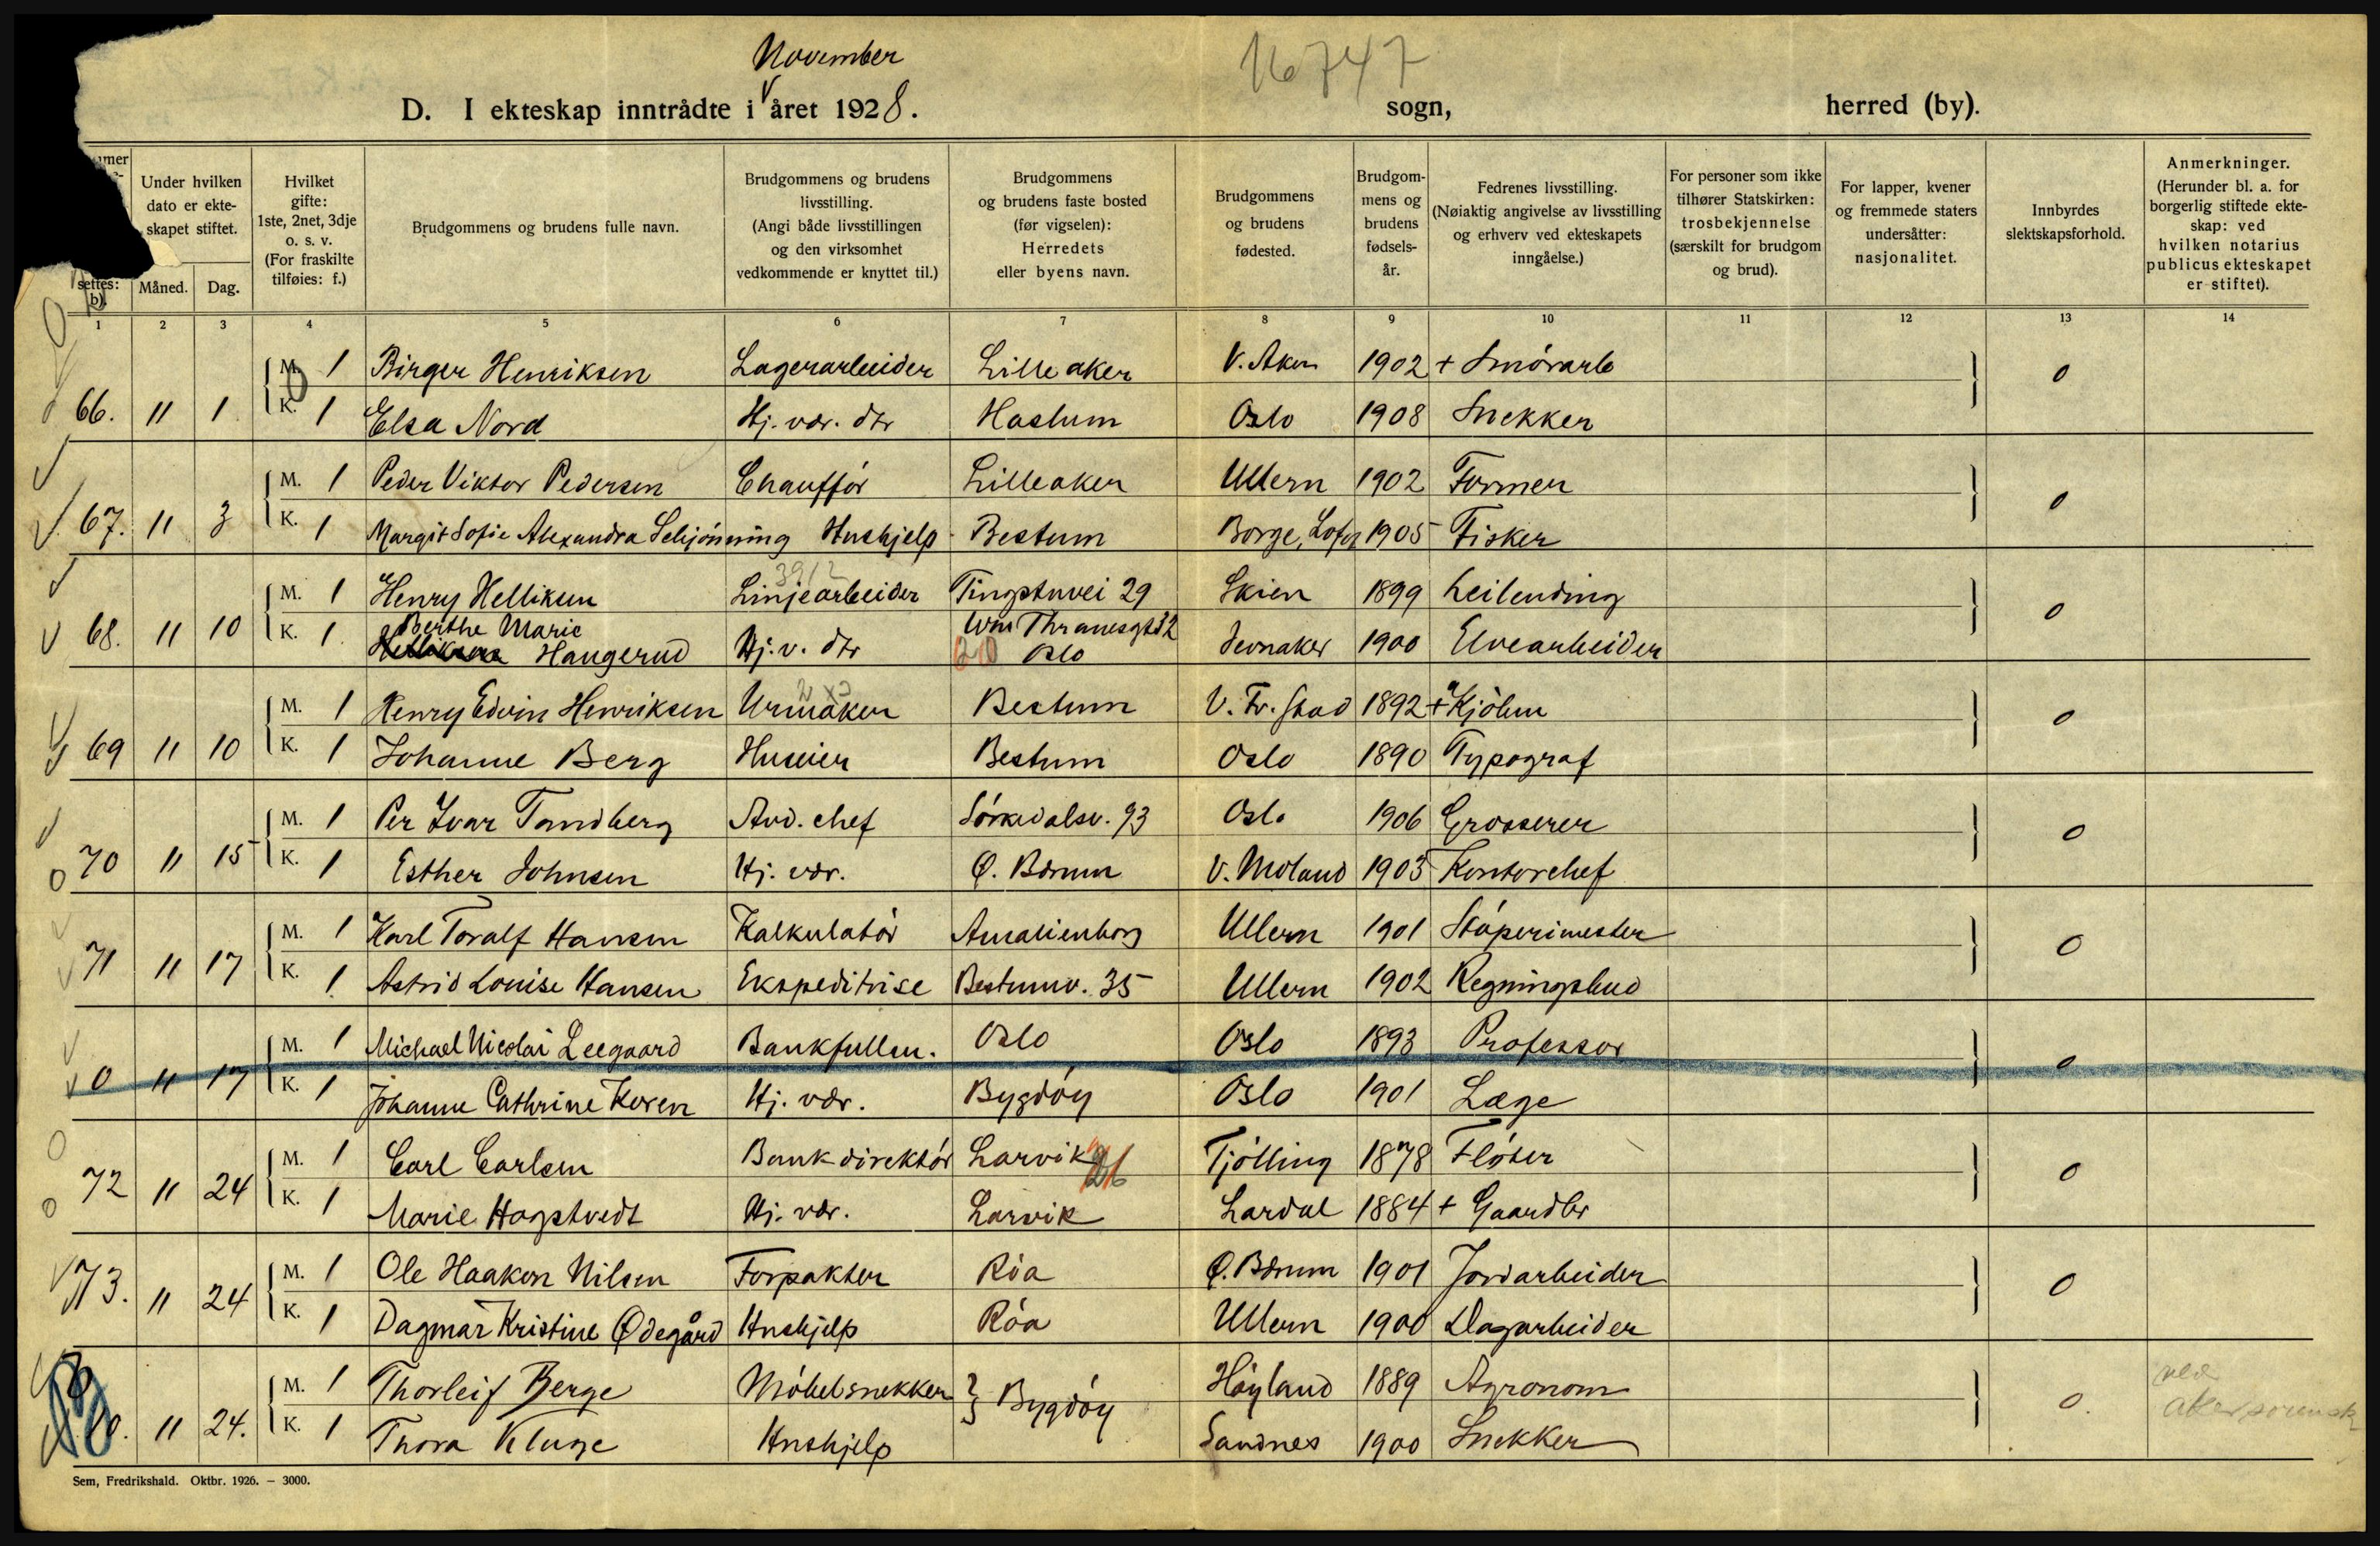 November
16747
D. I ekteskap inntrådte i året 1928. sogn, herred (by).
Under hvilken dato er ekteskapet stiftet.
Måned. Dag.
Hvilket gifte: 1ste, 2net, 3dje o. s. v. (For fraskilte tilføies: f.)
Brudgommens og brudens fulle navn.
Brudgommens og brudens livsstilling. (Angi både livsstillingen og den virksomhet vedkommende er knyttet til.)
Brudgommens og brudens faste bosted (før vigselen): Herredets eller byens navn.
Brudgommens og brudens fødested.
Brudgommens og brudens fødselsår.
Fedrenes livsstilling. (Nøiaktig angivelse av livsstilling og erhverv ved ekteskapets inngåelse.)
For personer som ikke tilhører Statskirken: trosbekjennelse (særskilt for brudgom og brud).
For lapper, kvener og fremmede staters undersåtter: nasjonalitet.
Innbyrdes slektskapsforhold.
Anmerkninger. (Herunder bl. a. for borgerlig stiftede ekteskap: ved hvilken notarius publicus ekteskapet er stiftet).
1 2 3 4 5 6 7 8 9 10 11 12 13 14
M. 1 Birger Henriksen Lagerarbeider Lilleaker V. Aker 1902 + Smörarb 0
66. 11 1 K. 1 Elsa Nord Hj. vær. dtr Haslum Oslo 1908 Snekker
M. 1 Peder Viktor Pedersen Chaufför Lilleaker Ullern 1902 Former 0
67. 11 3 K. 1 Margit Sofie Alexandra Schjönning Hushjelp Bestum Borge, Lofot 1905 Fisker
M. 1 Henry Helliksen Linjearbeider Tingstuvei 29 Skien 1899 Leilending 0
68. 11 10 K. 1 Berthe Marie Haugerud Hj. v. dtr Wm Thranesgt 32 Oslo Jevnaker 1900 Elvearbeider
M. 1 Henry Edvin Henriksen Urmaker Bestum V. Fr. stad 1892 + Kjöbm 0
69 11 10 K. 1 Johanne Berg Huseier Bestum Oslo 1890 Typograf
M. 1 Per Ivar Tandberg Avd. chef Sörkedalsv. 93 Oslo 1906 Grosserer 0
70 11 15 K. 1 Esther Johnsen Hj. vær. Ø. Bærum V. Moland 1903 Kontorchef
M. 1 Karl Toralf Hansen Kalkulatör Amalienborg Ullern 1901 Stöperimester 0
71 11 17 K. 1 Astrid Louise Hansen Ekspeditrise Bestumv. 35 Ullern 1902 Regningsbud
M. 1 Michael Nicolai Leegaard Bankfullm. Oslo Oslo 1893 Professor 0
0 11 17 K. 1 Johanne Cathrine Koren Hj. vær. Bygdöy Oslo 1901 Læge
M. 1 Carl Carlsen Bankdirektör Larvik Tjölling 1878 Flöter 0
72 11 24 K. 1 Marie Hagstvedt Hj. vær. Larvik Lardal 1884 + Gaardbr
M. 1 Ole Haakon Nilsen Forpakter Röa Ø. Bærum 1901 Jordarbeider 0
73. 11 24 K. 1 Dagmar Kristine Ødegård Hushjelp Röa Ullern 1900 Dagarbeider
M. 1 Thorleif Berge Möbelsnekker Bygdöy Höyland 1889 Agronom 0.
11 24. K. 1 Thora Kluge Hushjelp Sandnes 1900 Snekker
ved
Aker sorensk
Sem, Fredrikshald. Oktbr. 1926. – 3000.